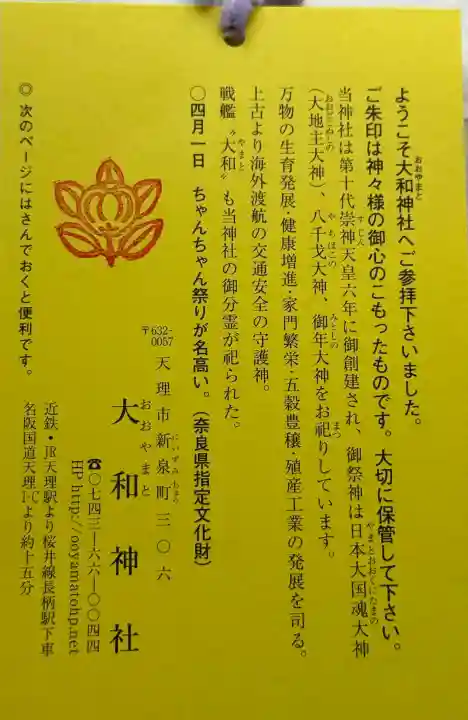 ようこそ大和神社へご参拝下さいました。
おおやまと
ご朱印は神々様の御心のこもったものです。大切に保管して下さい。
当神社は第十代崇神天皇六年に御創建され、御祭神は日本大国魂大神
すじん
やまとおおくにたまの
(大地主大神)、八千戈大神、御年大神をお祀りしています。
おおどこぬしの
やちほこの
みとしの
まつ
万物の生育発展·健康増進·家門繁栄·五穀豊穣·殖産工業の発展を司る。
上古より海外渡航の交通安全の守護神。
戦艦〝大和〟も当神社の御分霊が祀られた。
やまと
○四月一日 ちゃんちゃん祭りが名高い。(奈良県指定文化財)
〒632-0057 天理市新泉町三〇六
にいずみちょう
大和神社
おおやまと
☎〇七四三ー六六ー〇〇四四
HP http://ooyamatohp.net
近鉄・JR天理駅より桜井線長柄駅下車
名阪国道天理I・Cより約十五分
◎ 次のページにはさんでおくと便利です。